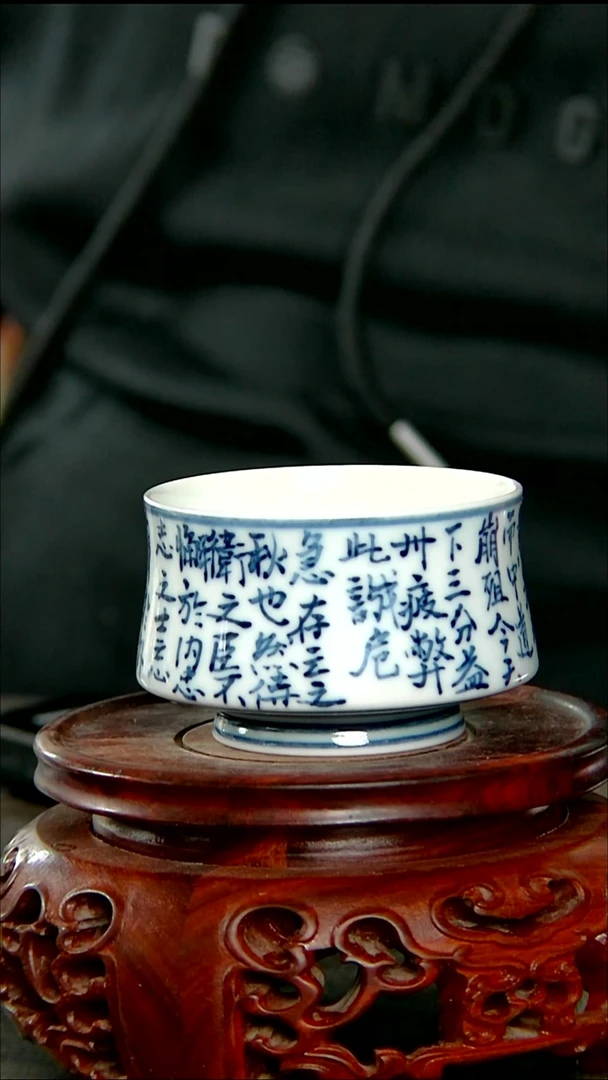 中道
崩殂今天
下三分益
州疲弊
此誠危
急存亡之
秋也然侍
衛之臣不
懈於内忠
志之士忘